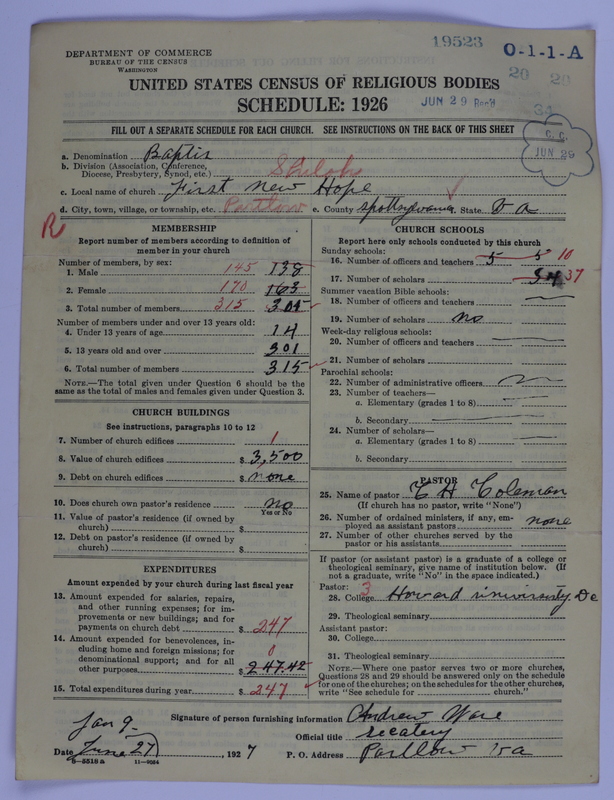 19523 O-1-1-A
DEPARTMENT OF COMMERCE
BUREAU OF THE CENSUS
WASHINGTON
20 20
UNITED STATES CENSUS OF RELIGIOUS BODIES
SCHEDULE: 1926
JUN 29 Rec'd
34
FILL OUT A SEPARATE SCHEDULE FOR EACH CHURCH. SEE INSTRUCTIONS ON THE BACK OF THIS SHEET
C. C.
JUN 29
a. Denomination Baptis
b. Division (Association, Conference,
Diocese, Presbytery, Synod, etc.) Shiloh
c. Local name of church First new Hope
d. City, town, village, or township, etc. Partlow e. County spottsylvania State Va
R
MEMBERSHIP
Report number of members according to definition of
member in your church
Number of members, by sex:
1. Male 145 138
2. Female 170 163
3. Total number of members 315 301
Number of members under and over 13 years old:
4. Under 13 years of age 14
5. 13 years old and over 301
6. Total number of members 315
NOTE.—The total given under Question 6 should be the
same as the total of males and females given under Question 3.
CHURCH BUILDINGS
See instructions, paragraphs 10 to 12
7. Number of church edifices 1
8. Value of church edifices $ 3,500
9. Debt on church edifices $ none
10. Does church own pastor's residence no
Yes or No
11. Value of pastor's residence (if owned by
church) $
12. Debt on pastor's residence (if owned by
church) $
EXPENDITURES
Amount expended by your church during last fiscal year
13. Amount expended for salaries, repairs,
and other running expenses; for im-
provements or new buildings; and for
payments on church debt $ 247
14. Amount expended for benevolences, in-
cluding home and foreign missions; for
denominational support; and for all
other purposes $ 0 247.42
15. Total expenditures during year $ 247
CHURCH SCHOOLS
Report here only schools conducted by this church
Sunday schools:
16. Number of officers and teachers 5 5 10
17. Number of scholars 34 37
Summer vacation Bible schools:
18. Number of officers and teachers
19. Number of scholars no
Week-day religious schools:
20. Number of officers and teachers
21. Number of scholars
Parochial schools:
22. Number of administrative officers
23. Number of teachers—
a. Elementary (grades 1 to 8)
b. Secondary
24. Number of scholars—
a. Elementary (grades 1 to 8)
b. Secondary
PASTOR
25. Name of pastor E H Coleman
(If church has no pastor, write "None")
26. Number of ordained ministers, if any, em-
ployed as assistant pastors none
27. Number of other churches served by the
pastor or his assistants
If pastor (or assistant pastor) is a graduate of a college or
theological seminary, give name of institution below. (If
not a graduate, write "No" in the space indicated.)
Pastor: 3
28. College Howard university Dc
29. Theological seminary
Assistant pastor:
30. College
31. Theological seminary
NOTE.—Where one pastor serves two or more churches,
Questions 28 and 29 should be answered only on the schedule
for one of the churches; on the schedules for the other churches,
write "See schedule for church."
Signature of person furnishing information Andrew Ware
Jan 9 Official title secatery
Date June 27, 1927 P. O. Address Partlow va
8—5516 a 11—9024